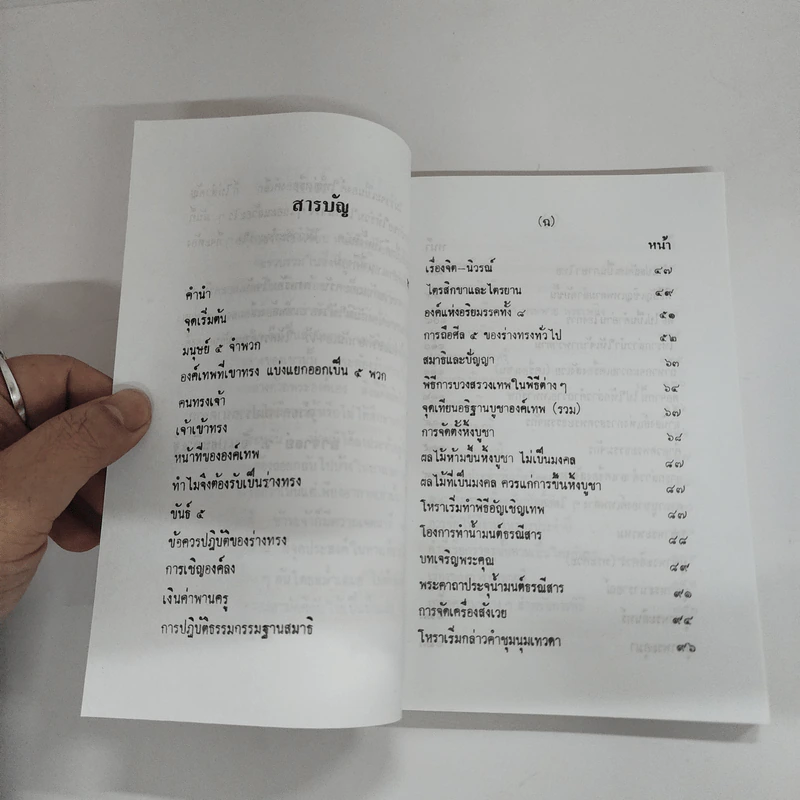 สารบัญ
คำนำ
จุดเริ่มต้น
มนุษย์ ๕ จำพวก
องค์เทพที่เขาทรง แบ่งแยกออกเป็น ๕ พวก
คนทรงเจ้า
เจ้าเข้าทรง
หน้าที่ขององค์เทพ
ทำไมจึงต้องรับเป็นร่างทรง
ขันธ์ ๕
ข้อควรปฎิบัติของร่างทรง
การเชิญองค์ลง
เงินค่าพานครู
การปฎิบัติธรรมกรรมฐานสมาธิ
(ฉ)
หน้า
เรื่องจิต--นิวรณ์ ๔๗
ไตรสิกขาและไตรยาน ๔๙
องค์แห่งอริยมรรคทั้ง ๘ ๕๑
การถือศีล ๕ ของร่างทรงทั่วไป ๕๒
สมาธิและปัญญา ๖๓
พิธีการบวงสรวงเทพในพิธีต่างๆ ๖๔
จุดเทียนอธิฐานบูชาองค์เทพ (รวม) ๖๗
การจัดตั้งหิ้งบูชา ๖๘
ผลไม้ห้ามขึ้นหิ้งบูชา ไม่เป็นมงคล ๘๗
ผลไม้ที่เป็นมงคล ควรแก่การขึ้นหิ้งบูชา ๘๗
โหราเริ่มทำพิธีอัญเชิญเทพ ๘๗
โองการทำน้ำมนต์ธรณีสาร ๘๘
บทเจริญพระคุณ ๘๙
พระคาถาประจุน้ำมนต์ธรณีสาร ๙๑
การจัดเครื่องสังเวย ๙๔
โหราเริ่มกล่าวคำชุมนุมเทวดา ๙๖